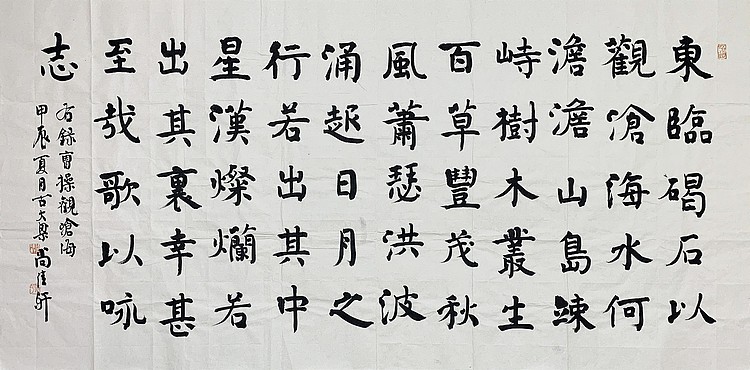 東臨碣石以
觀滄海水何
澹澹山島竦
峙樹木叢生
百草豐茂秋
風蕭瑟洪波
涌起日月之
行若出其中
星漢燦爛若
出其裏幸甚
至哉歌以詠
志
右錄曹操觀滄海
甲辰夏月古大梁尚佳軒